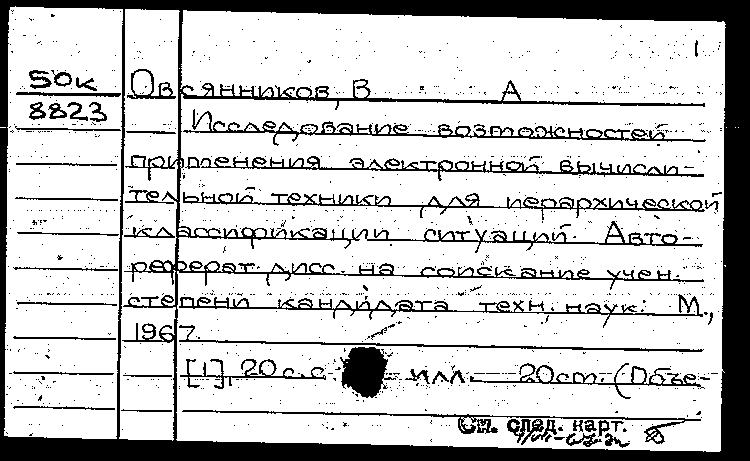 1
50к Овсянников, В А
8823
Исследование возможностей
применения электронной вычисли-
тельной техники для иерархической
классификации ситуаций. Авто-
реферат дисс. на соискание учен.
степени кандидата техн. наук. М.,
1967.
[1], 20 с. с илл. 20 см. (Объе-
См. след. карт.